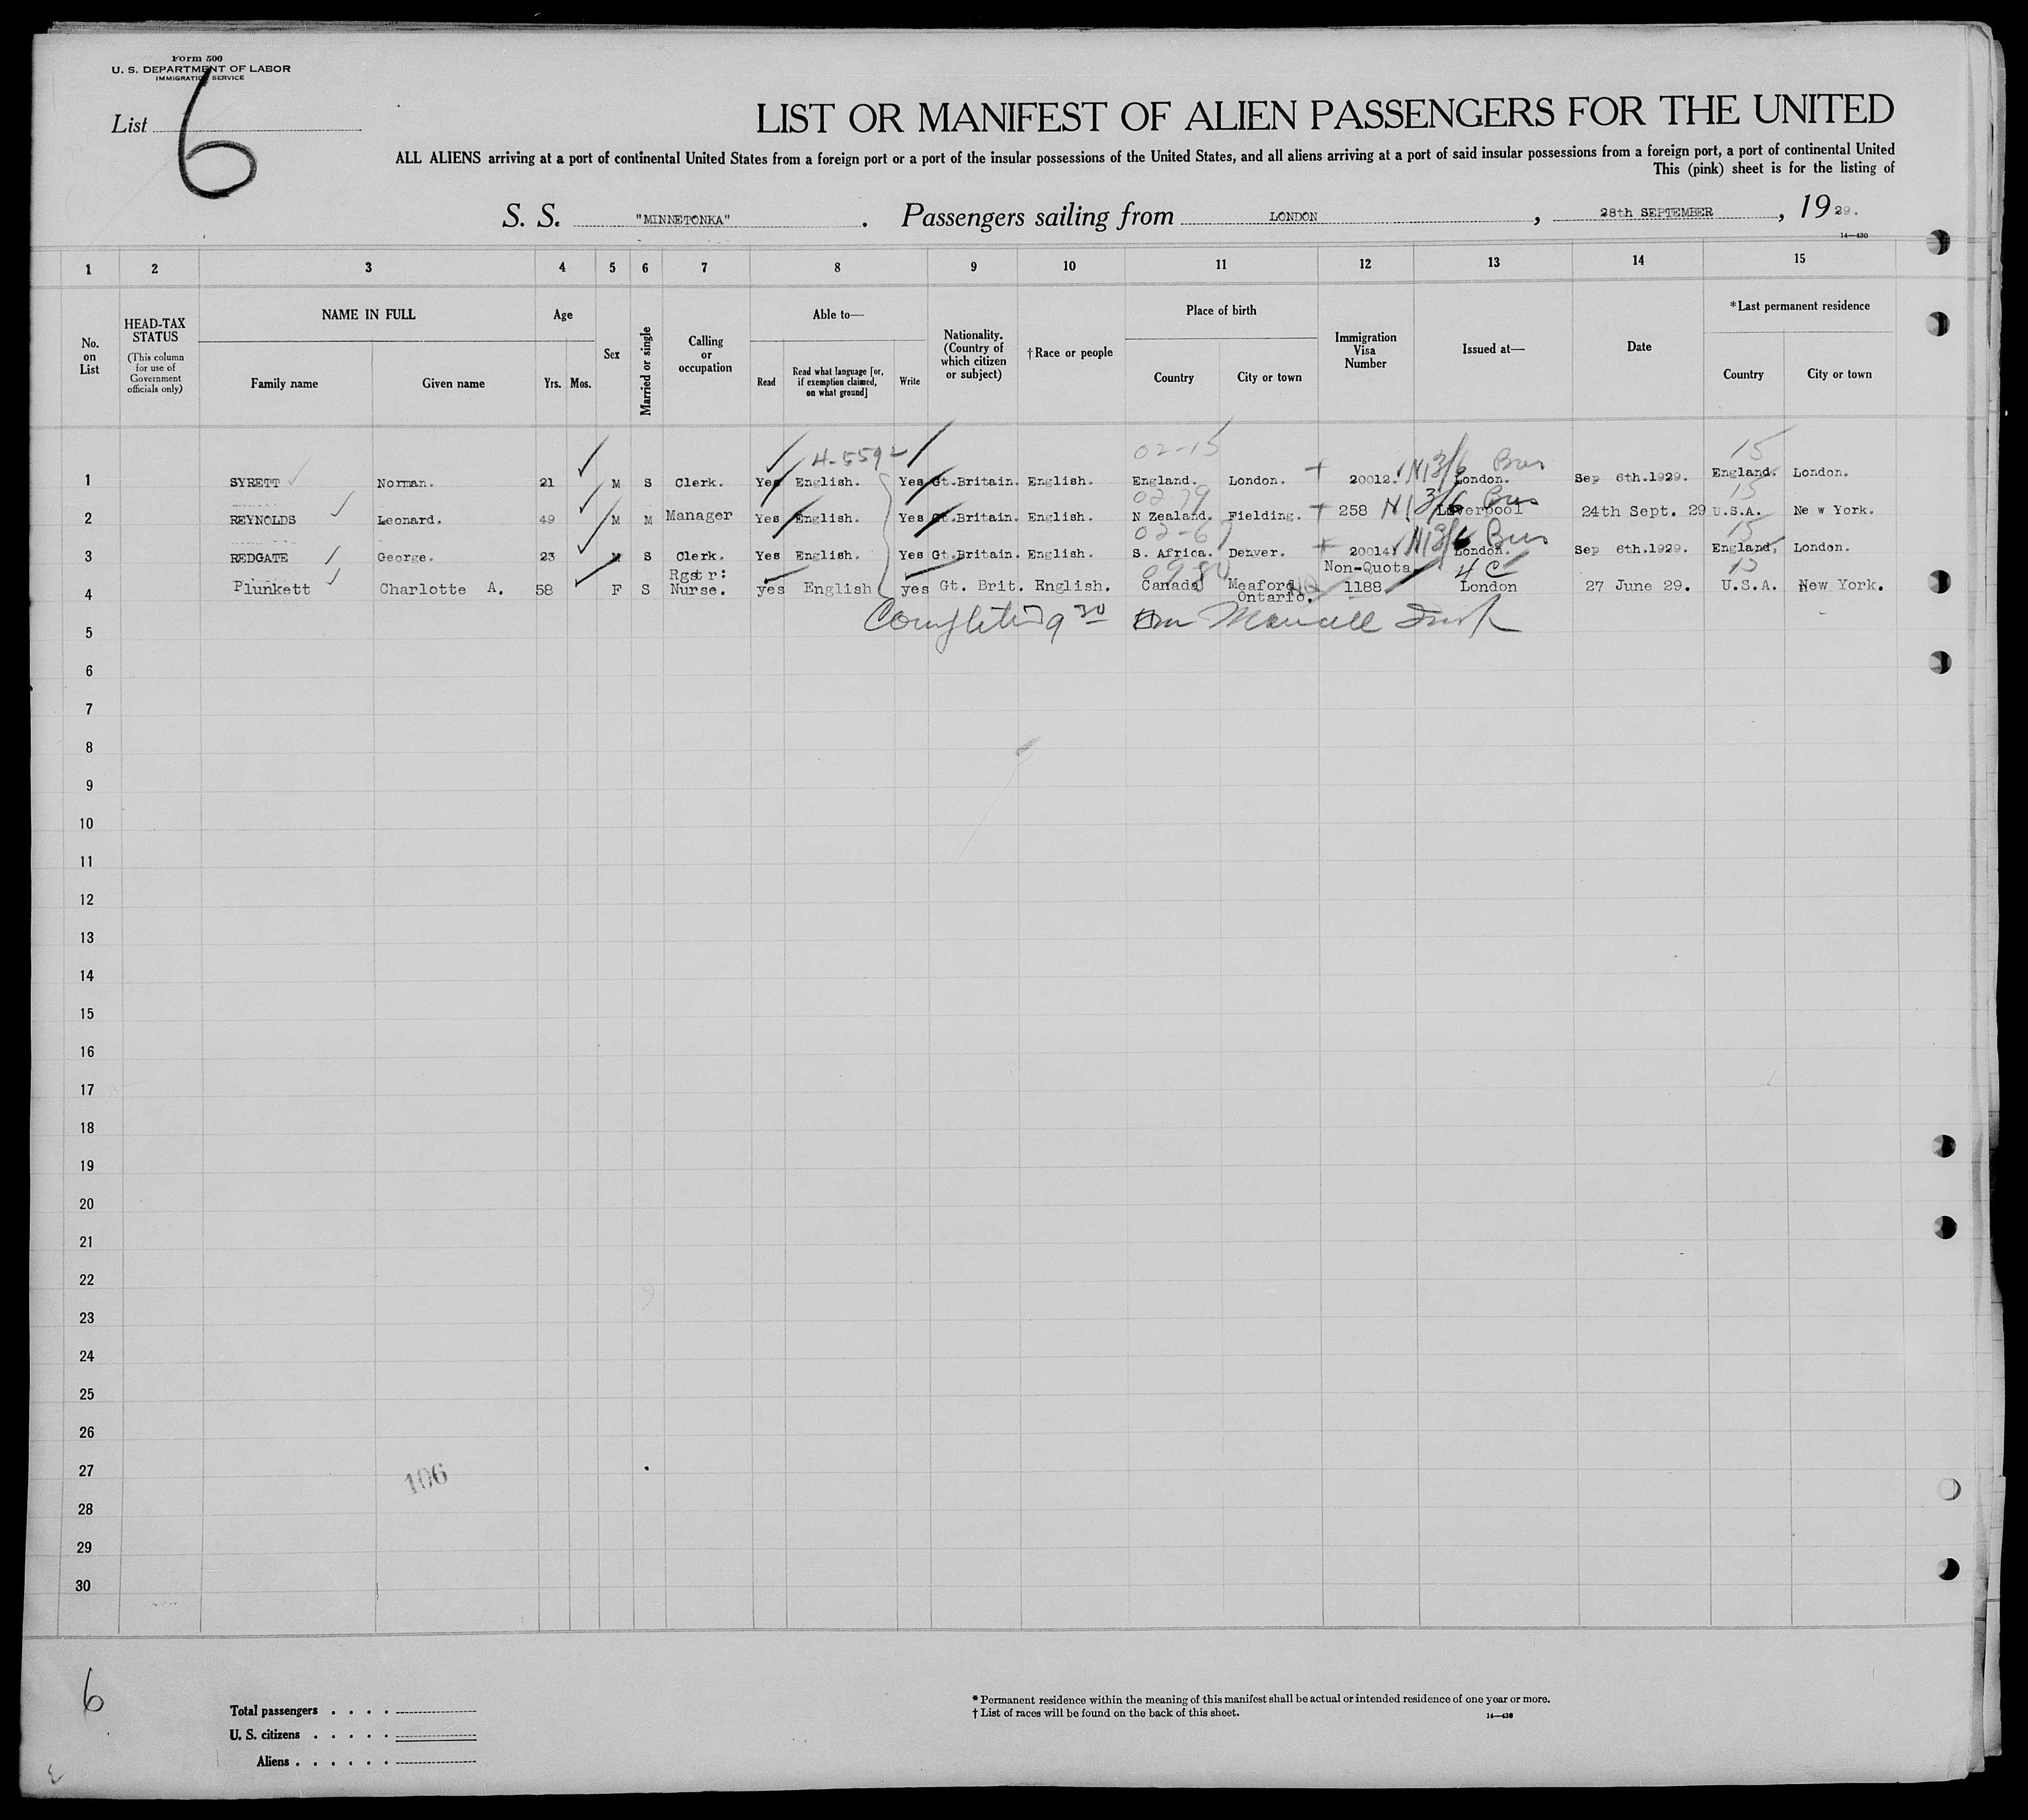 Form 500
U. S. DEPARTMENT OF LABOR
IMMIGRATION SERVICE
List 6
LIST OR MANIFEST OF ALIEN PASSENGERS FOR THE UNITED
ALL ALIENS arriving at a port of continental United States from a foreign port or a port of the insular possessions of the United States, and all aliens arriving at a port of said insular possessions from a foreign port, a port of continental United
This (pink) sheet is for the listing of
S. S. "MINNETONKA". Passengers sailing from LONDON, 28th SEPTEMBER, 1929.
14—430
1 2 3 4 5 6 7 8 9 10 11 12 13 14 15
No. on List
HEAD-TAX STATUS
(This column for use of Government officials only)
NAME IN FULL
Family name Given name
Age
Yrs. Mos.
Sex
Married or single
Calling or occupation
Able to—
Read Read what language [or, if exemption claimed, on what ground] Write
Nationality. (Country of which citizen or subject)
†Race or people
Place of birth
Country City or town
Immigration Visa Number
Issued at—
Date
*Last permanent residence
Country City or town
4-5592 02-15 15
1 SYRETT Norman. 21 M S Clerk. Yes English. Yes Gt.Britain. English. England. London. 20012. N13/6 Bus London. Sep 6th.1929. England. London.
02 79 15
2 REYNOLDS Leonard. 49 M M Manager Yes English. Yes Gt.Britain. English. N Zealand. Fielding. 258 N13/6 Bus Liverpool 24th Sept. 29 U.S.A. Ne w York.
02-67 15
3 REDGATE George. 23 M S Clerk. Yes English. Yes Gt.Britain. English. S. Africa. Denver. 20014 N13/6 Bus London. Sep 6th.1929. England, London.
Rgstr: Non-Quota 4 C 15
4 Plunkett Charlotte A. 58 F S Nurse. yes English yes Gt. Brit. English. Canada Meaford Ontario. 1188 London 27 June 29. U.S.A. New York.
5
6
7
8
9
10
11
12
13
14
15
16
17
18
19
20
21
22
23
24
25
26
27 106
28
29
30
6
Total passengers
U. S. citizens
Aliens
* Permanent residence within the meaning of this manifest shall be actual or intended residence of one year or more.
† List of races will be found on the back of this sheet.
14—430